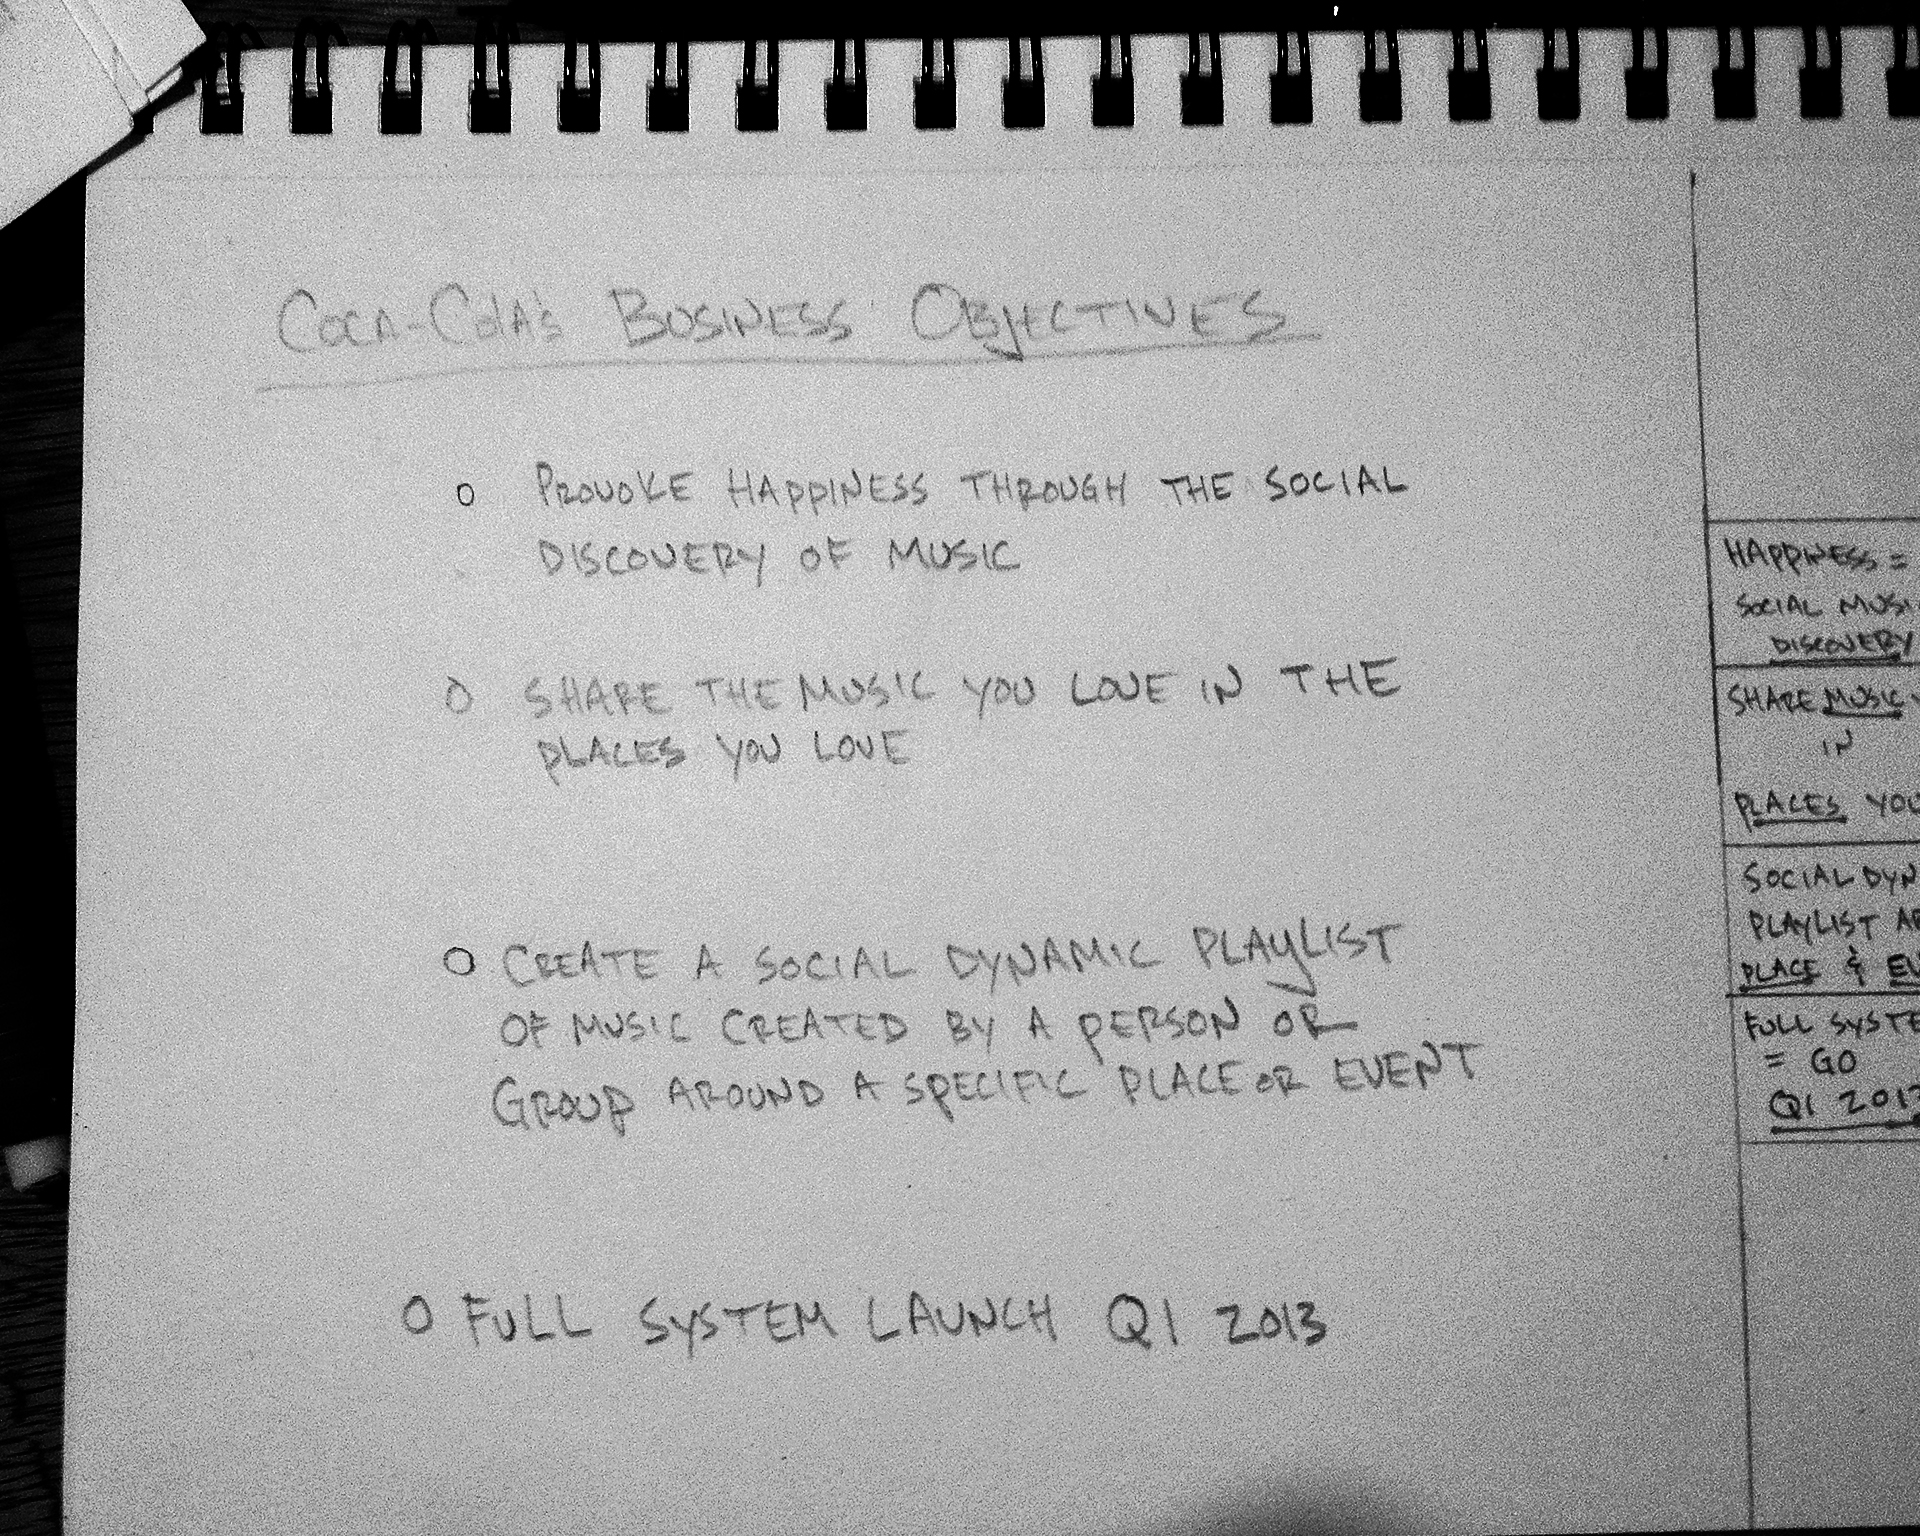 Coca-Cola's Business Objectives
O PROVOKE HAPPINESS THROUGH THE SOCIAL
DISCOVERY OF MUSIC
O SHARE THE MUSIC YOU LOVE IN THE
PLACES YOU LOVE
O CREATE A SOCIAL DYNAMIC PLAYLIST
OF MUSIC CREATED BY A PERSON OR
GROUP AROUND A SPECIFIC PLACE OR EVENT
O FULL SYSTEM LAUNCH Q1 2013
HAPPINESS =
SOCIAL MUSI
DISCOVERY
SHARE MUSIC
IN
PLACES YOU
SOCIAL DYN
PLAYLIST AR
PLACE & EV
FULL SYSTE
= GO
Q1 2013